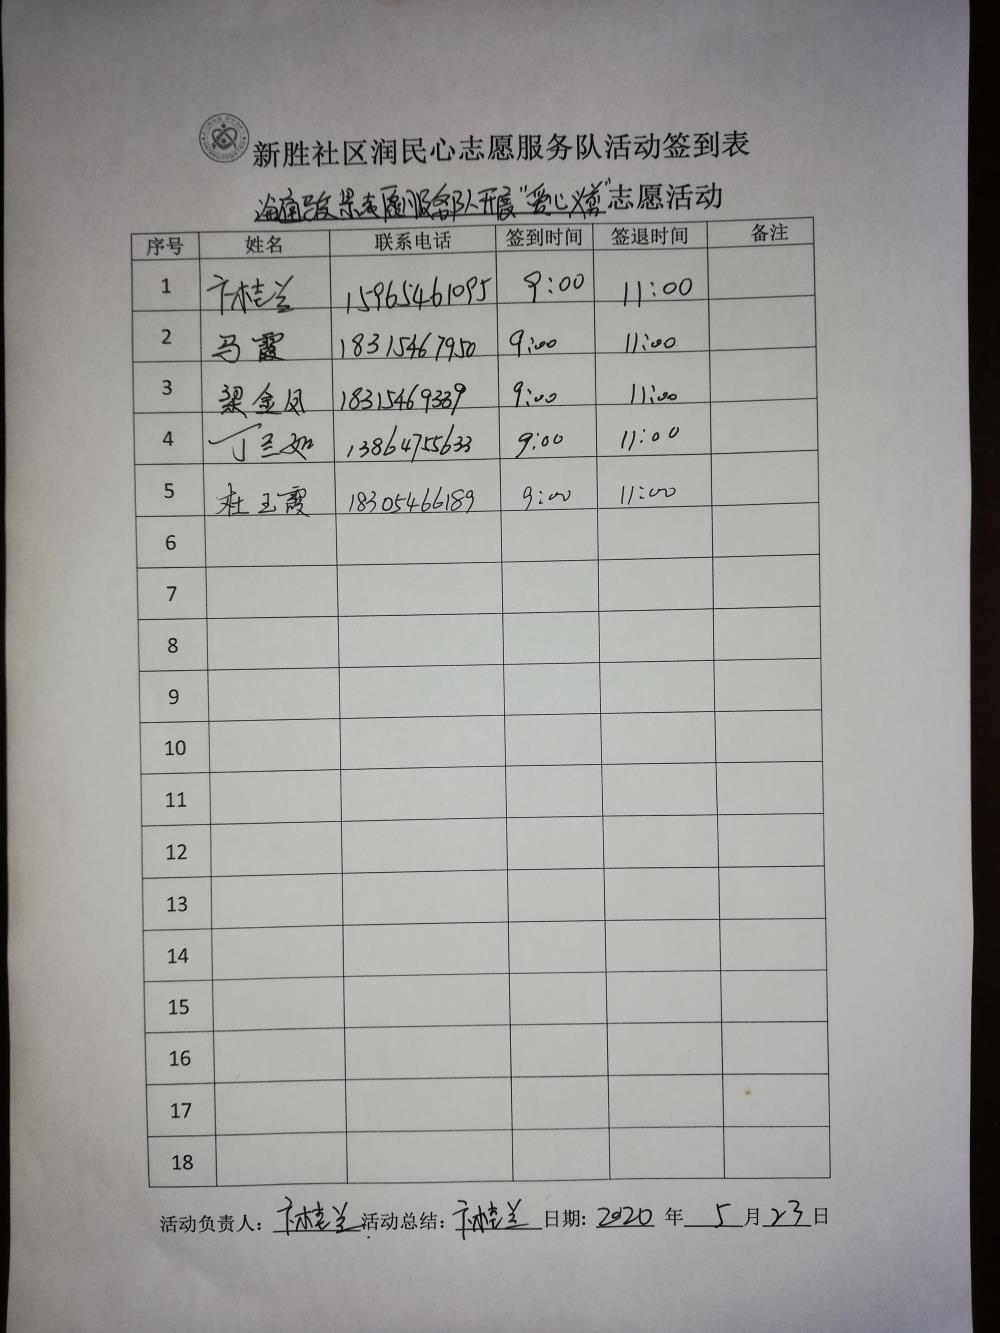 新胜社区润民心志愿服务队活动签到表
志愿服务队开展“爱心义剪”志愿活动
序号 姓名 联系电话 签到时间 签退时间 备注
1 卞桂兰 15965461095 9:00 11:00
2 马霞 18315467950 9:00 11:00
3 梁金凤 18315469339 9:00 11:00
4 丁兰如 13864755633 9:00 11:00
5 杜玉霞 18305466189 9:00 11:00
6
7
8
9
10
11
12
13
14
15
16
17
18
活动负责人：卞桂兰 活动总结：卞桂兰 日期：2020 年 5 月 23 日